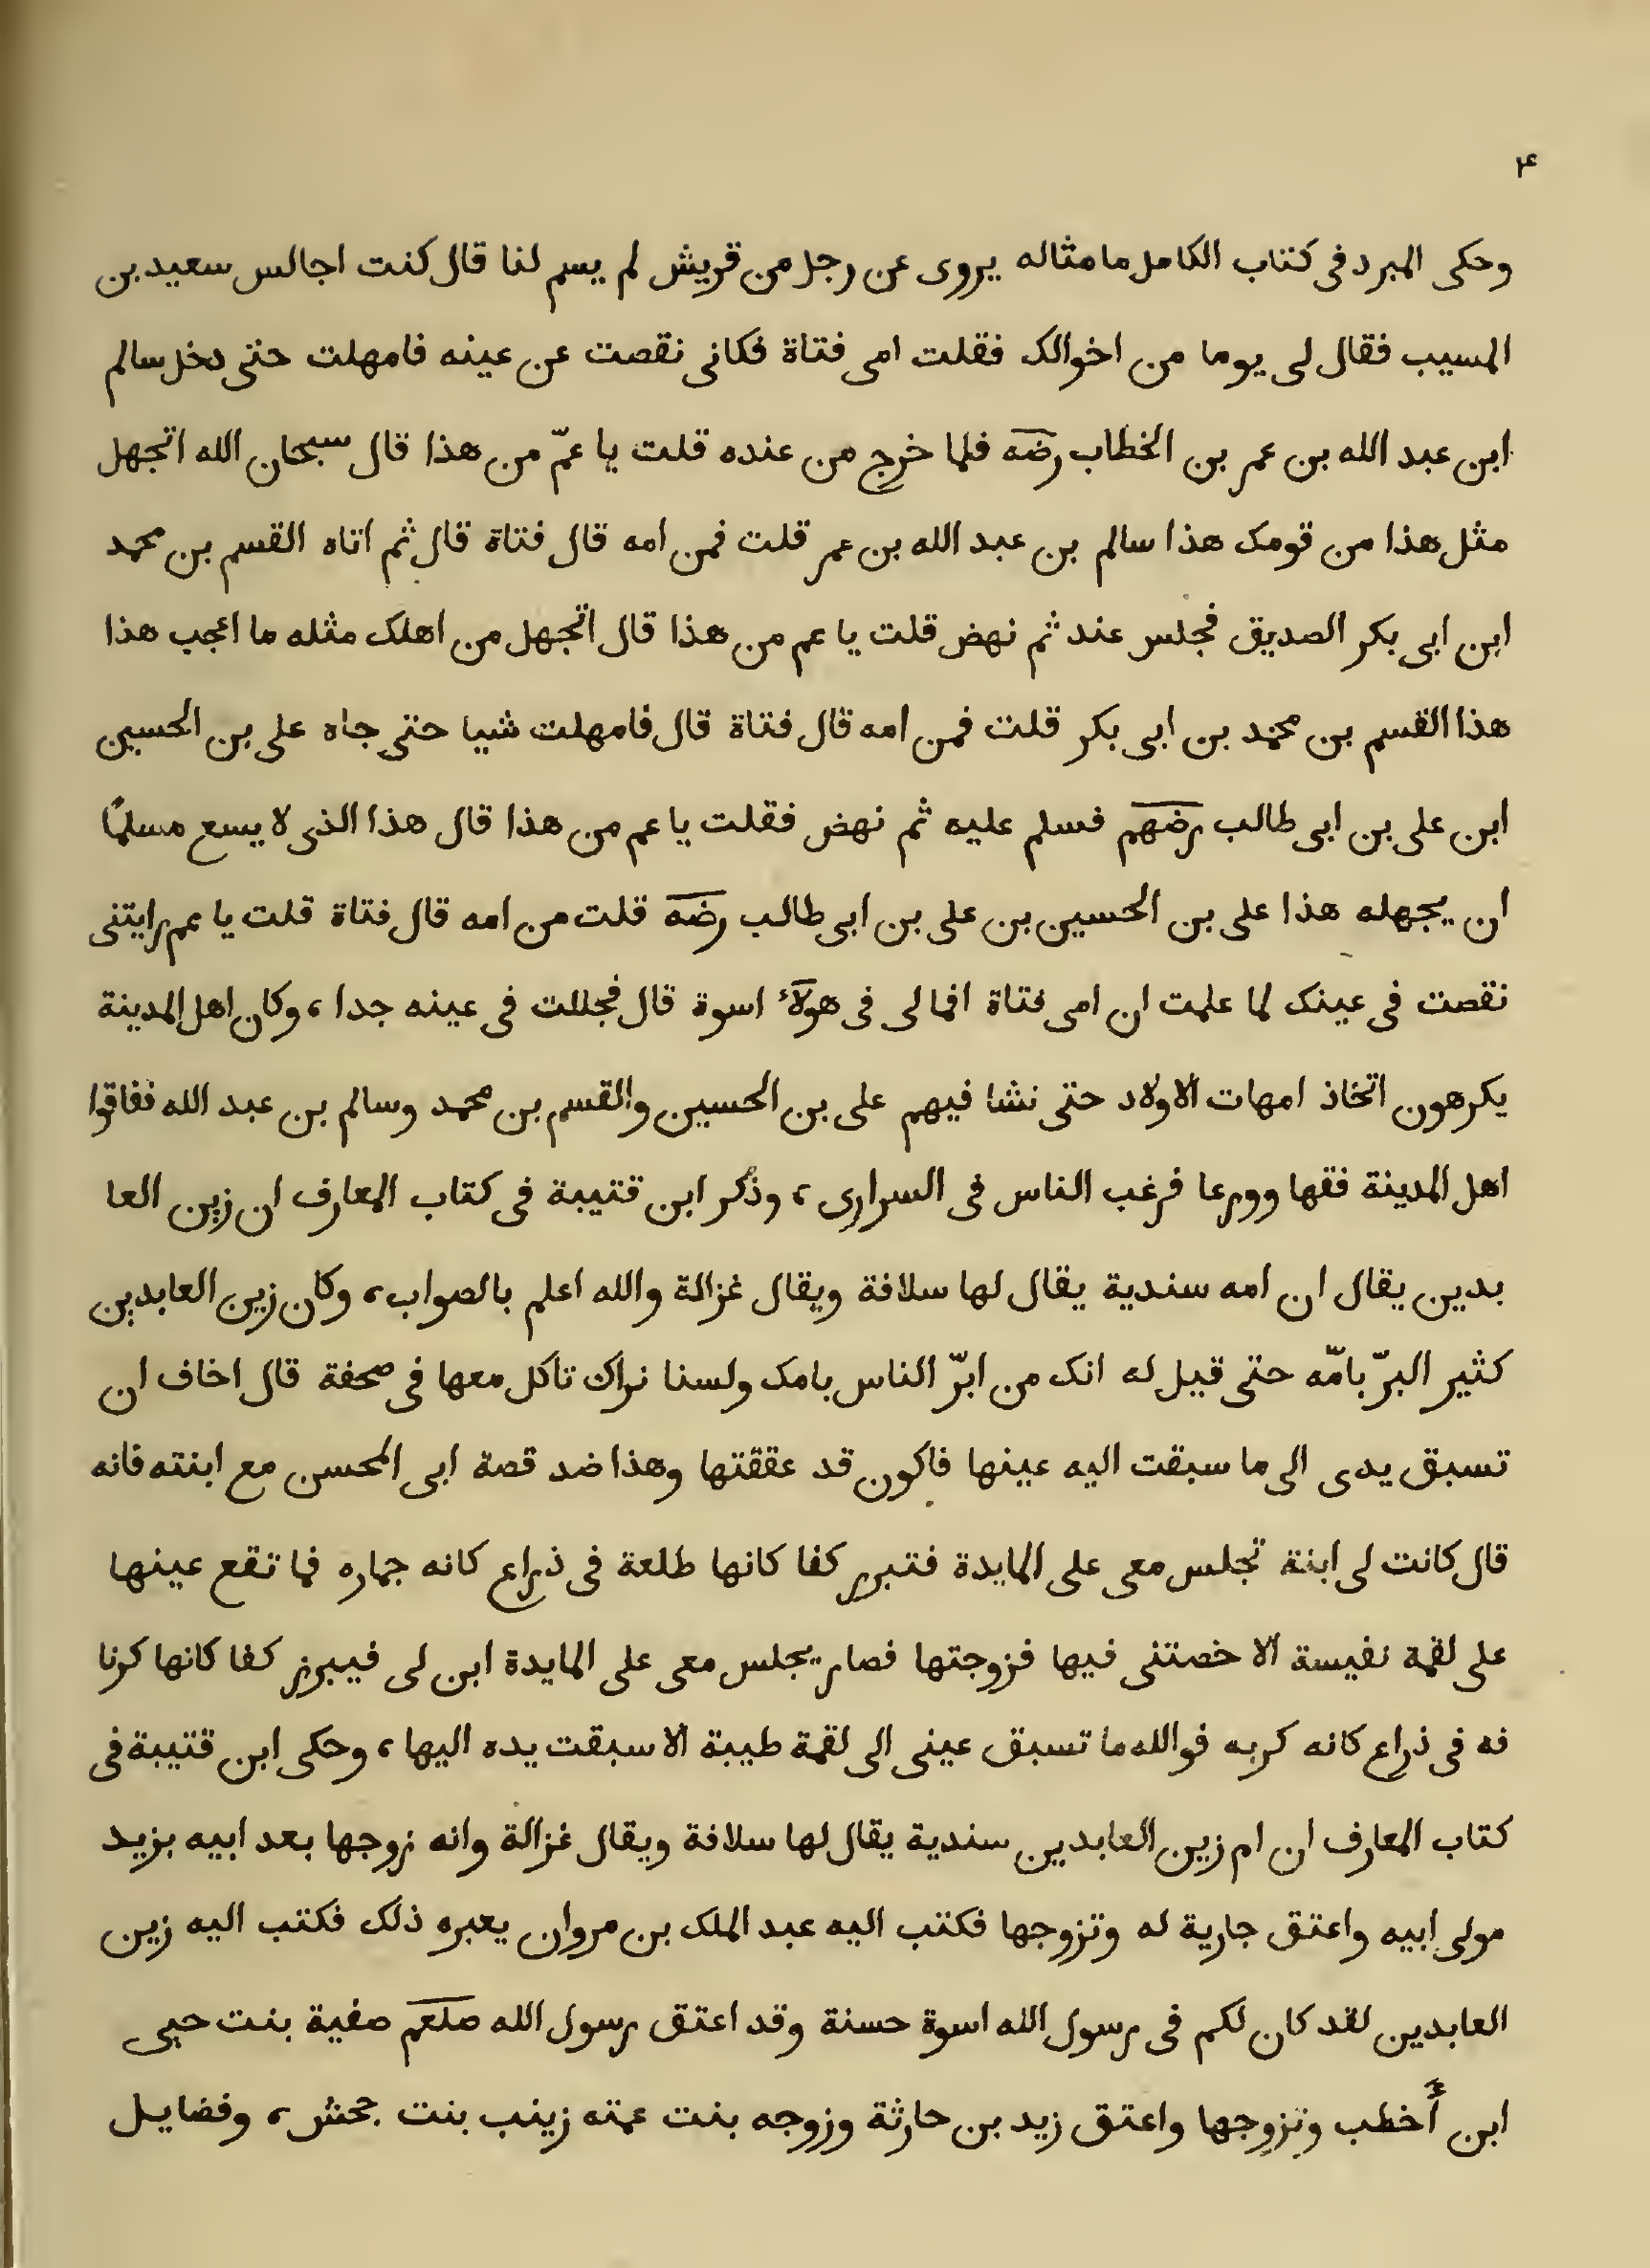 ۴
وحكى المبرد فى كتاب الكامل ما مثاله يروى عن رجل من قريش لم يسم لنا قال كنت اجالس سعيد بن
المسيب فقال لى يوما من اخوالك فقلت امى فتاة فكانى نقصت عن عينه فامهلت حتى دخل سالم
ابن عبد الله بن عمر بن الخطاب رضه فلما خرج من عنده قلت يا عمّ من هذا قال سبحان الله اتجهل
مثل هذا من قومك هذا سالم بن عبد الله بن عمر قلت فمن امه قال فتاة قال ثم اتاه القسم بن محمد
ابن ابى بكر الصديق فجلس عند ثم نهض قلت يا عم من هذا قال اتجهل من اهلك مثله ما اعجب هذا
هذا القسم بن محمد بن ابى بكر قلت فمن امه قال فتاة قال فامهلت شيا حتى جاه على بن الحسين
ابن على بن ابى طالب رضهم فسلم عليه ثم نهض فقلت يا عم من هذا قال هذا الذى لا يسع مسلمًا
ان يجهله هذا على بن الحسين بن على بن ابى طالب رضه قلت من امه قال فتاة قلت يا عم رايتنى
نقصت فى عينك لما علمت ان امى فتاة افما لى فى هولآء اسوة قال فجللت فى عينه جدا، وكان اهل المدينة
يكرهون اتخاذ امهات الاولاد حتى نشا فيهم على بن الحسين والقسم بن محمد وسالم بن عبد الله ففاقوا
اهل المدينة فقها وورعا فرغب الناس فى السرارى، وذكر ابن قتيبة فى كتاب المعارف ان زين العا
بدين يقال ان امه سندية يقال لها سلافة ويقال غزالة والله اعلم بالصواب، وكان زين العابدين
كثير البرّ بامّه حتى قيل له انك من ابرّ الناس بامك ولسنا نراك تاكل معها فى صحفة قال اخاف ان
تسبق يدى الى ما سبقت اليه عينها فاكون قد عققتها وهذا ضد قصة ابى المحسن مع ابنته فانه
قال كانت لى ابنة تجلس معى على المايدة فتبرر كفا كانها طلعة فى ذراع كانه جماره فما تقع عينها
على لقمة نفيسة الا خصتنى فيها فزوجتها فصار يجلس معى على المايدة ابن لى فيبرز كفا كانها كرنا
فه فى ذراع كانه كربه فوالله ما تسبق عينى الى لقمة طيبة الا سبقت يده اليها، وحكى ابن قتيبة فى
كتاب المعارف ان ام زين العابدين سندية يقال لها سلافة ويقال غزالة وانه زوجها بعد ابيه بزيد
مولى ابيه واعتق جارية له وتزوجها فكتب اليه عبد الملك بن مروان يعبره ذلك فكتب اليه زين
العابدين لقد كان لكم فى رسول الله اسوة حسنة وقد اعتق رسول الله صلعم صفية بنت حيى
ابن أخطب وتزوجها واعتق زيد بن حارثة وزوجه بنت عمته زينب بنت جحش، وفضايل